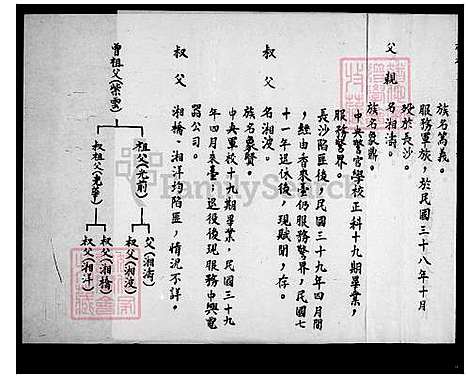 族名篤義。
服務軍旅，於民國三十八年十月
歿於長沙。
父親 名湘濤。
族名象鼎。
中央警官學校正科十九期畢業，
服務警界。
長沙陷匪後，民國三十九年四月間
，經由香來臺仍服務警界，民國七
十一年退休後，現賦閒，存。
叔父 名湘波。
族名象賢。
中央軍校十九期畢業，民國三十九
年四月來臺，退役後現服務中興電
器公司。
叔父 湘橋、湘洋均陷匪，情況不詳。
曾祖父(紫雲)
祖父(光前)
叔祖父
父(湘濤)
叔父(湘波)
叔父(湘橋)
叔父(湘洋)
FamilySearch